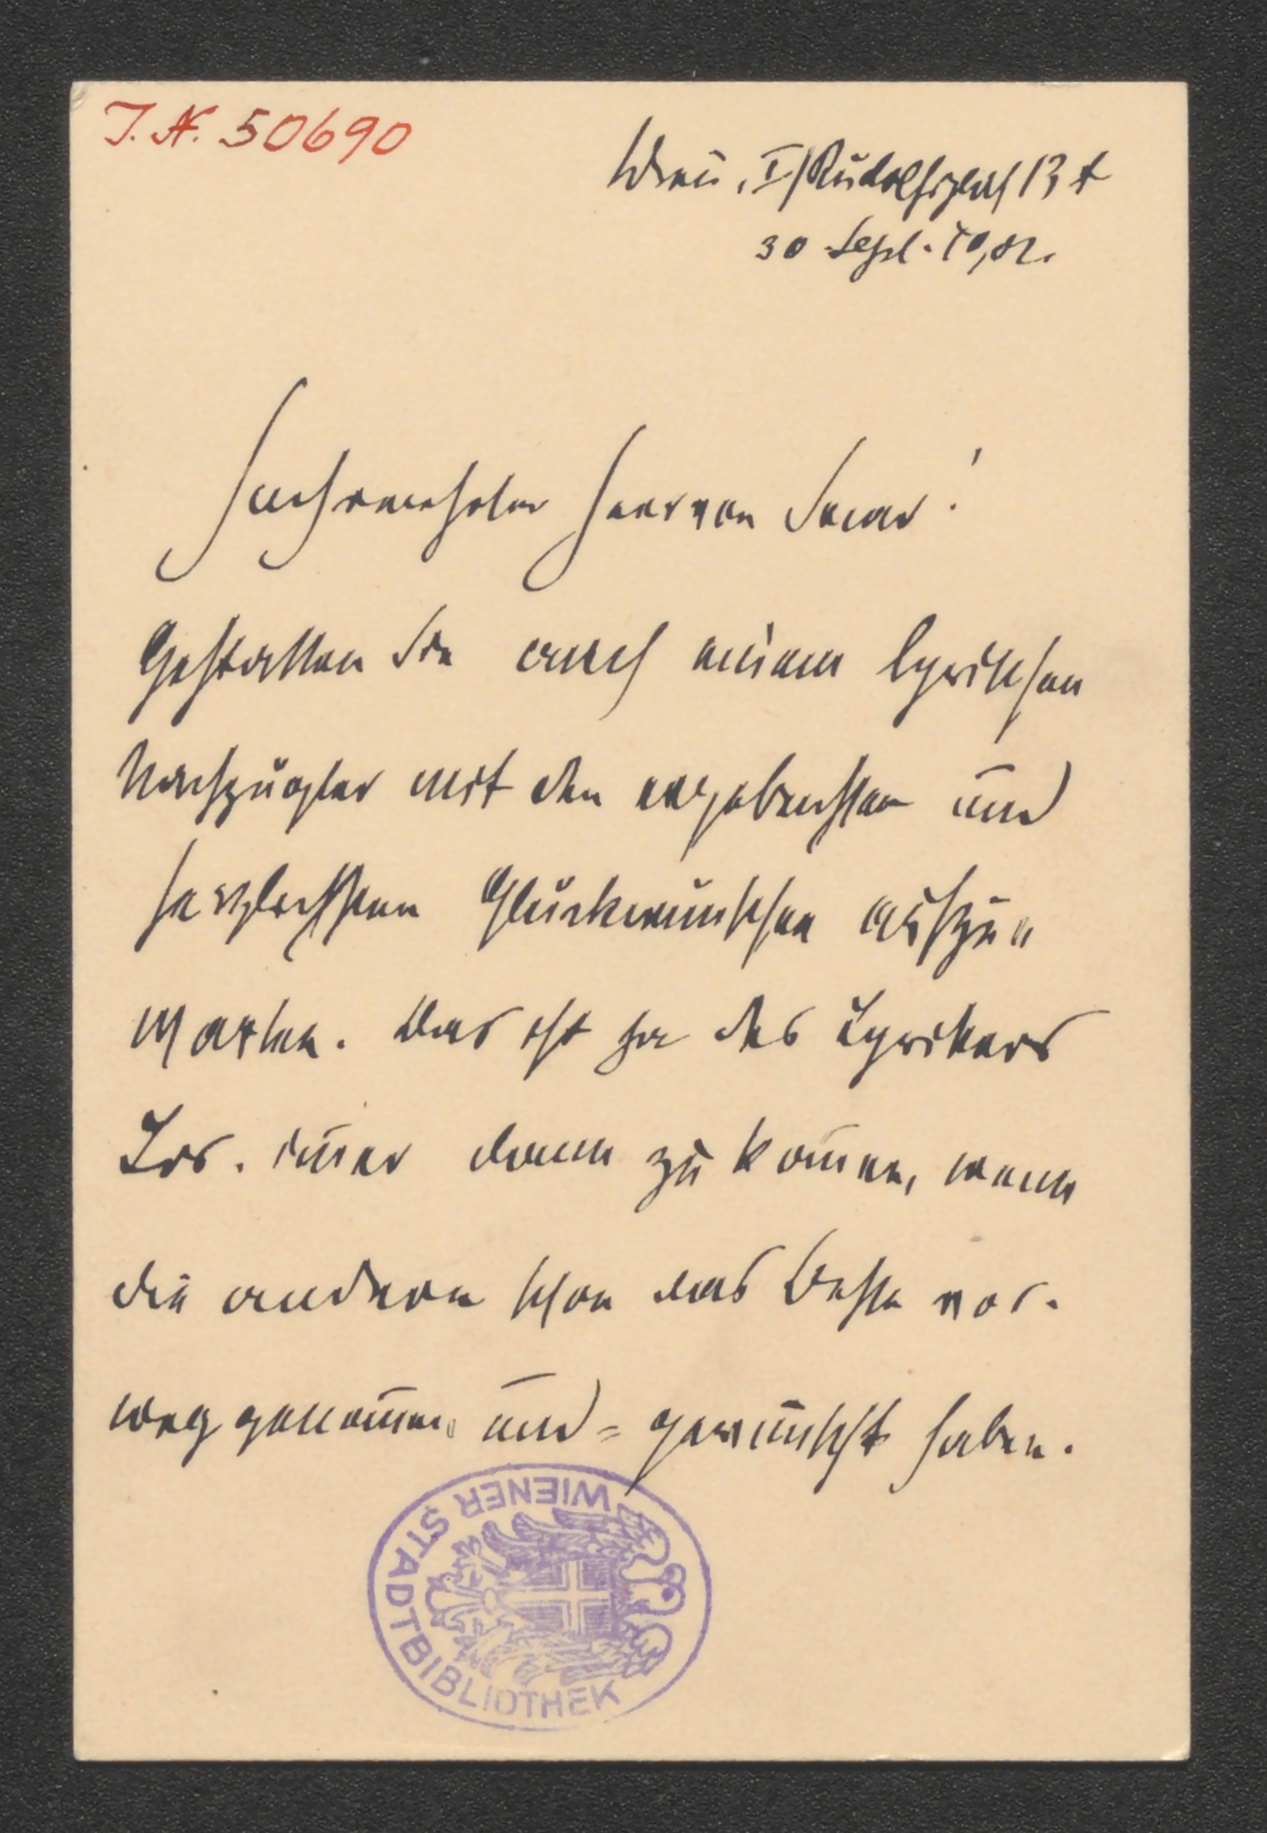 I. N. 50690
Wien, I/Rudolfsplatz 13 A
30 Sept. 1902.
Hochverehrter Herr von Saar!
Gestatten Sie auch einem lyrischen
Nachzügler mit den ergebensten und
herzlichsten Glückwünschen aufzu„
warten. Das ist ja des Lyrikers
Los. im̅er dann zu kom̅en, wenn
die andern schon das Beste vor-
weg genom̅en und = gewünscht haben.
WIENER STADTBIBLIOTHEK